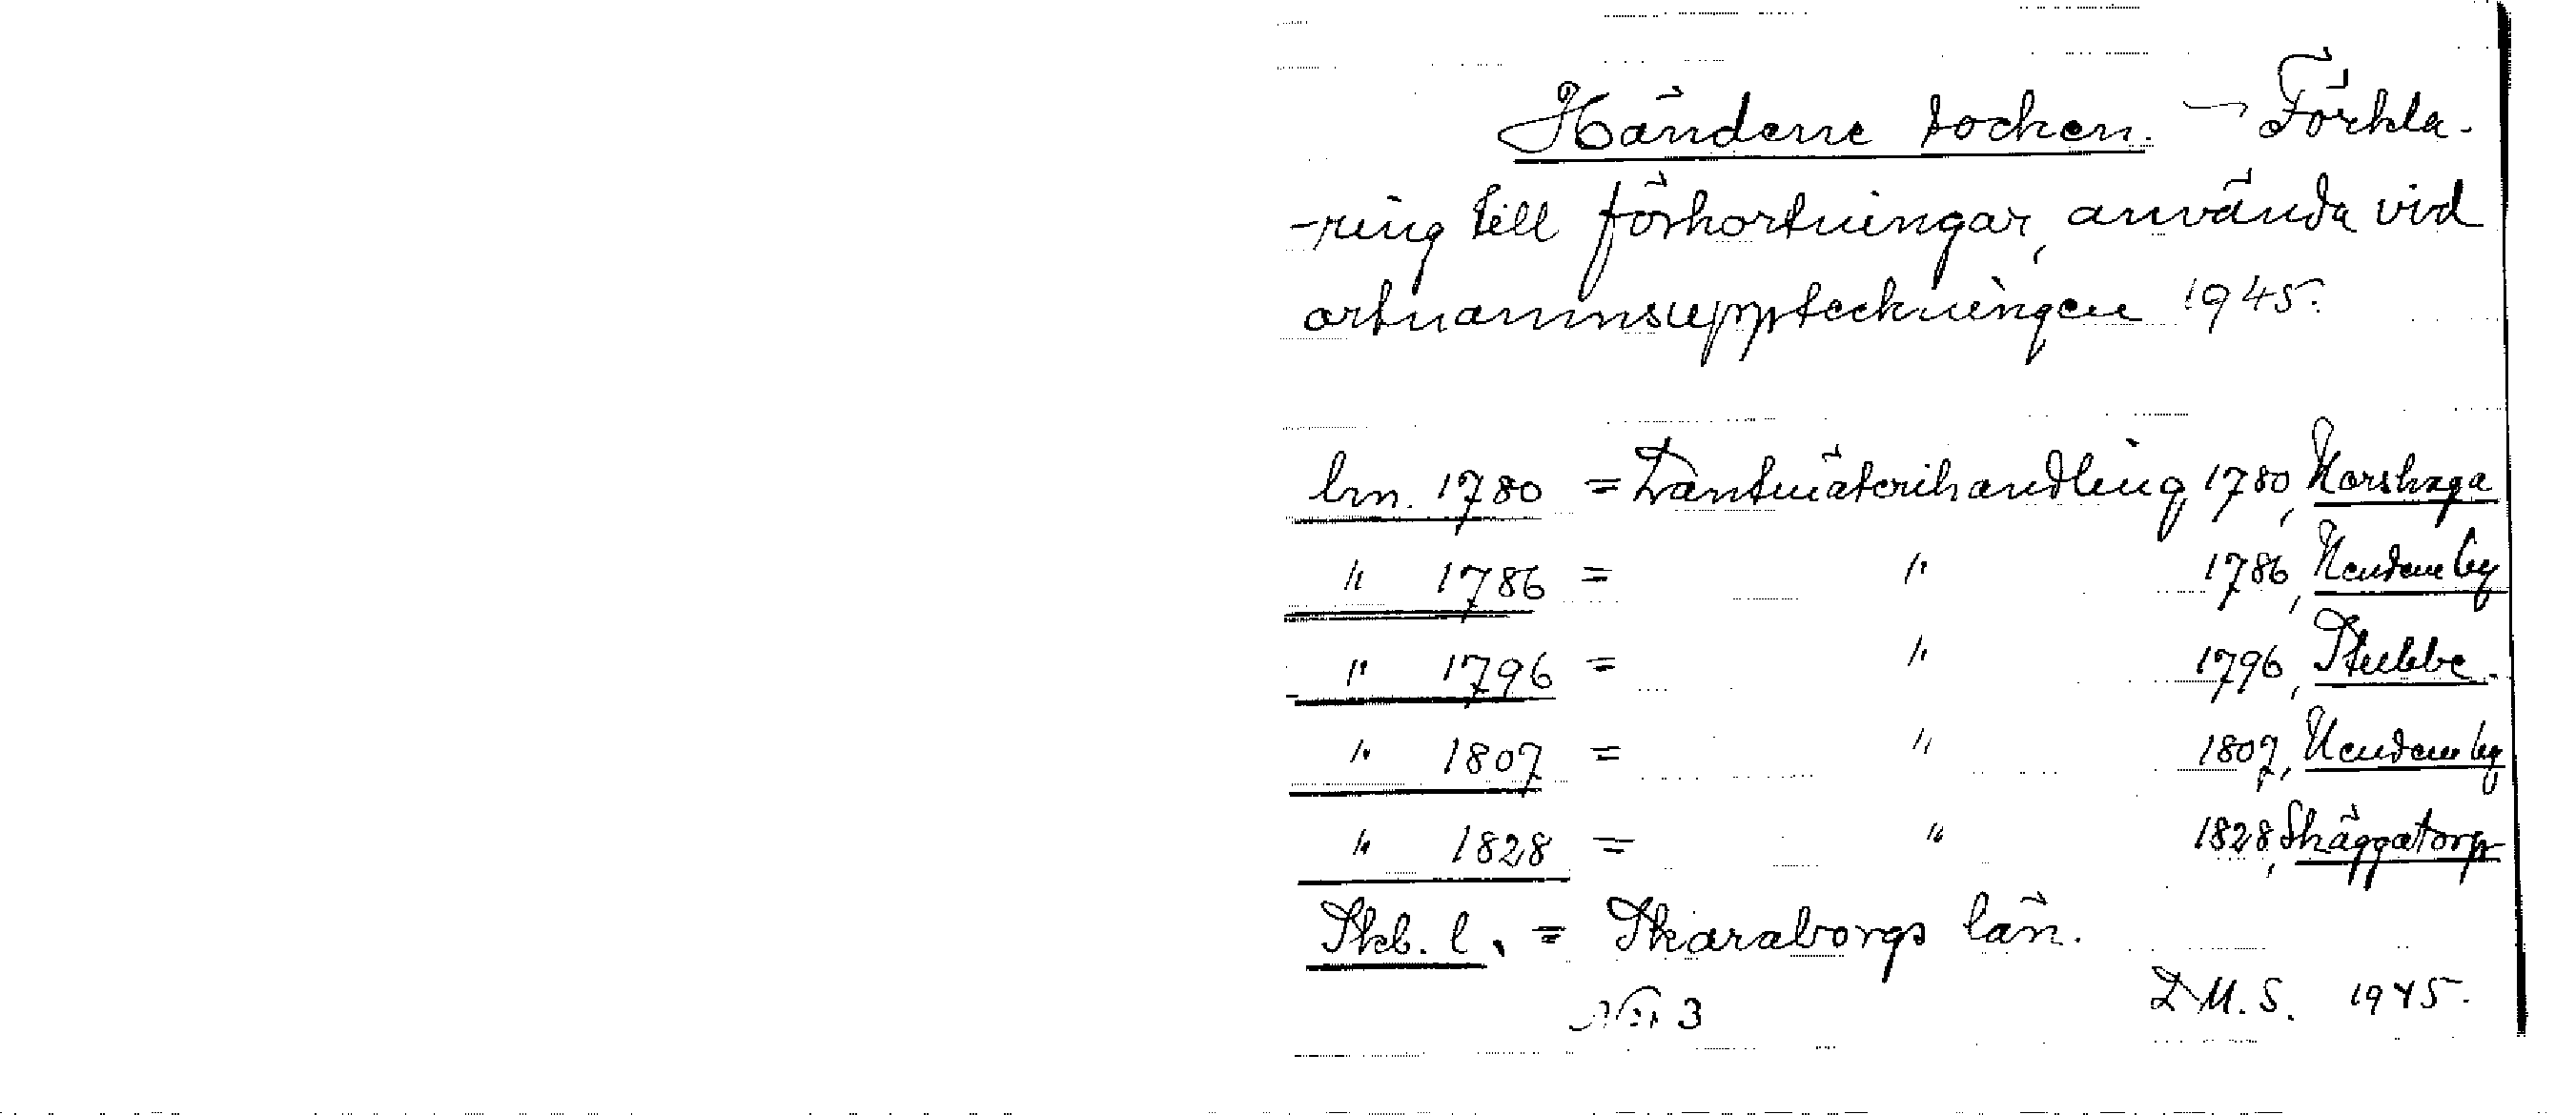 Händene socken. – Förkla-
-ring till förkortningar, använda vid
ortnamnsuppteckningen 1945.
lm. 1780 = Lantmäterihandling 1780, Korshaga
" 1786 = " 1786, Hendene by
" 1796 = " 1796, Stubbe.
" 1807 = " 1807, Hendene by
" 1828 = " 1828, Skäggatorp
Skb. l. = Skaraborgs län.
No 3 L M. S. 1945.